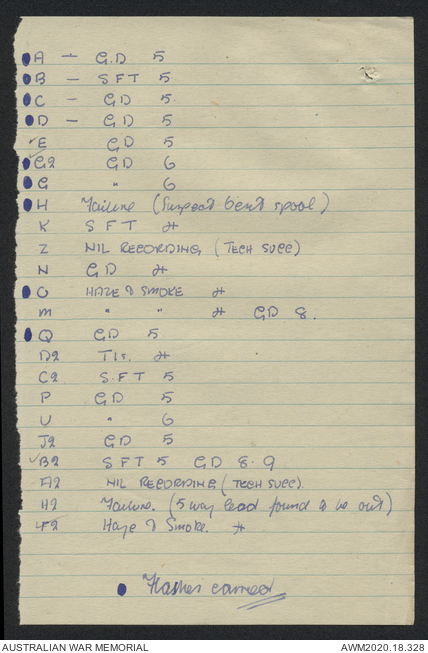 ● A — G.D 5
● B — SFT 5
● C — GD 5
● D — GD 5
✓ E GD 5
● G2 GD 6
● G " 6
● H Failure (Suspect bent spool)
K SFT *
Z NIL RECORDING (TECH SUCC)
N GD *
● O HAZE & SMOKE *
M " " * GD 8.
● Q GD 5
D2 T.I.s. *
C2 S.F.T 5
P GD 5
U " 6
J2 GD 5
✓ B2 SFT 5 GD 8.9
A2 NIL RECORDING (TECH SUCC).
H2 Failure. (5 way lead found to be out)
F2 Haze & Smoke. *
● Flashes carried
AUSTRALIAN WAR MEMORIAL AWM2020.18.328